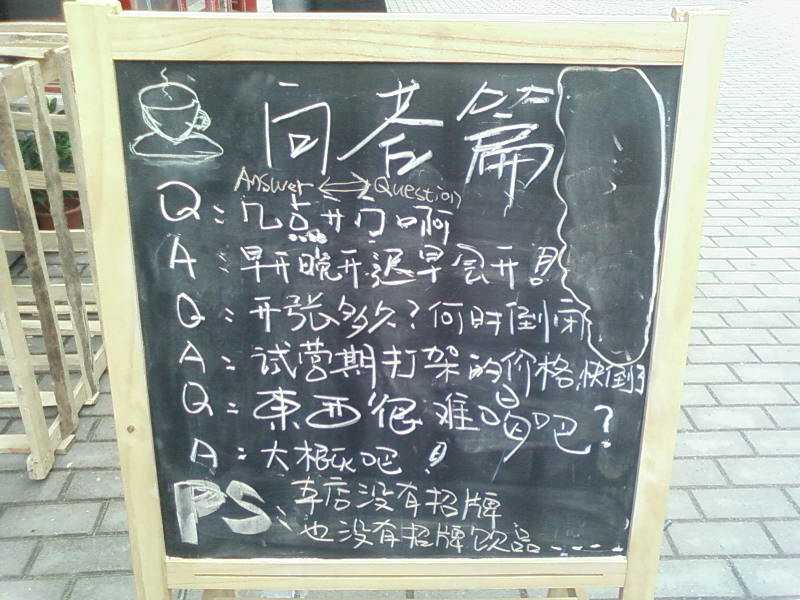 问答篇
Answer ⟷ Question
Q：几点开门啊
A：早开晚开迟早会开！
Q：开张多久？何时倒闭
A：试营期打架的价格，快倒了
Q：東西很难喝吧？
A：大概吧！
PS：本店没有招牌
也没有招牌饮品----